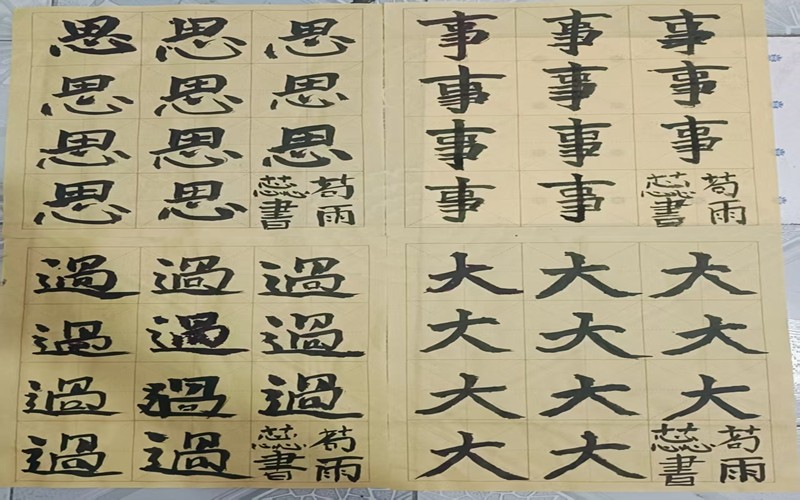 思思思
思思思
思思思
思思
苟雨
蕊書
事事事
事事事
事事事
事事
苟雨
蕊書
過過過
過過過
過過過
過過
苟雨
蕊書
大大大
大大大
大大大
大大
苟雨
蕊書